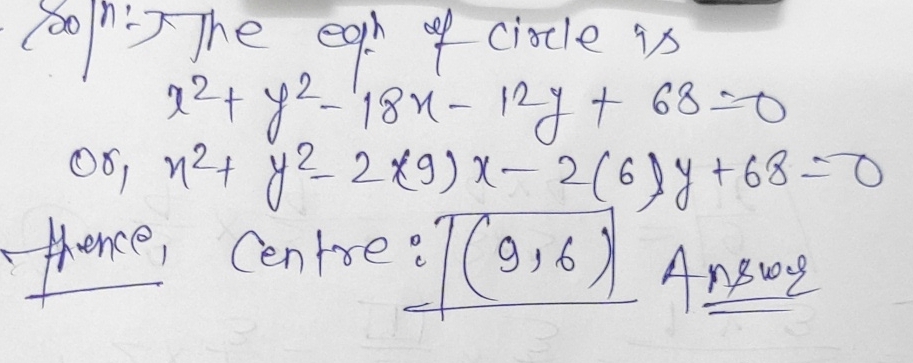 Soln:→ The eqn of circle is
x² + y² - 18x - 12y + 68 = 0
Or, x² + y² - 2(9)x - 2(6)y + 68 = 0
Hence, Centre: (9,6) Answer